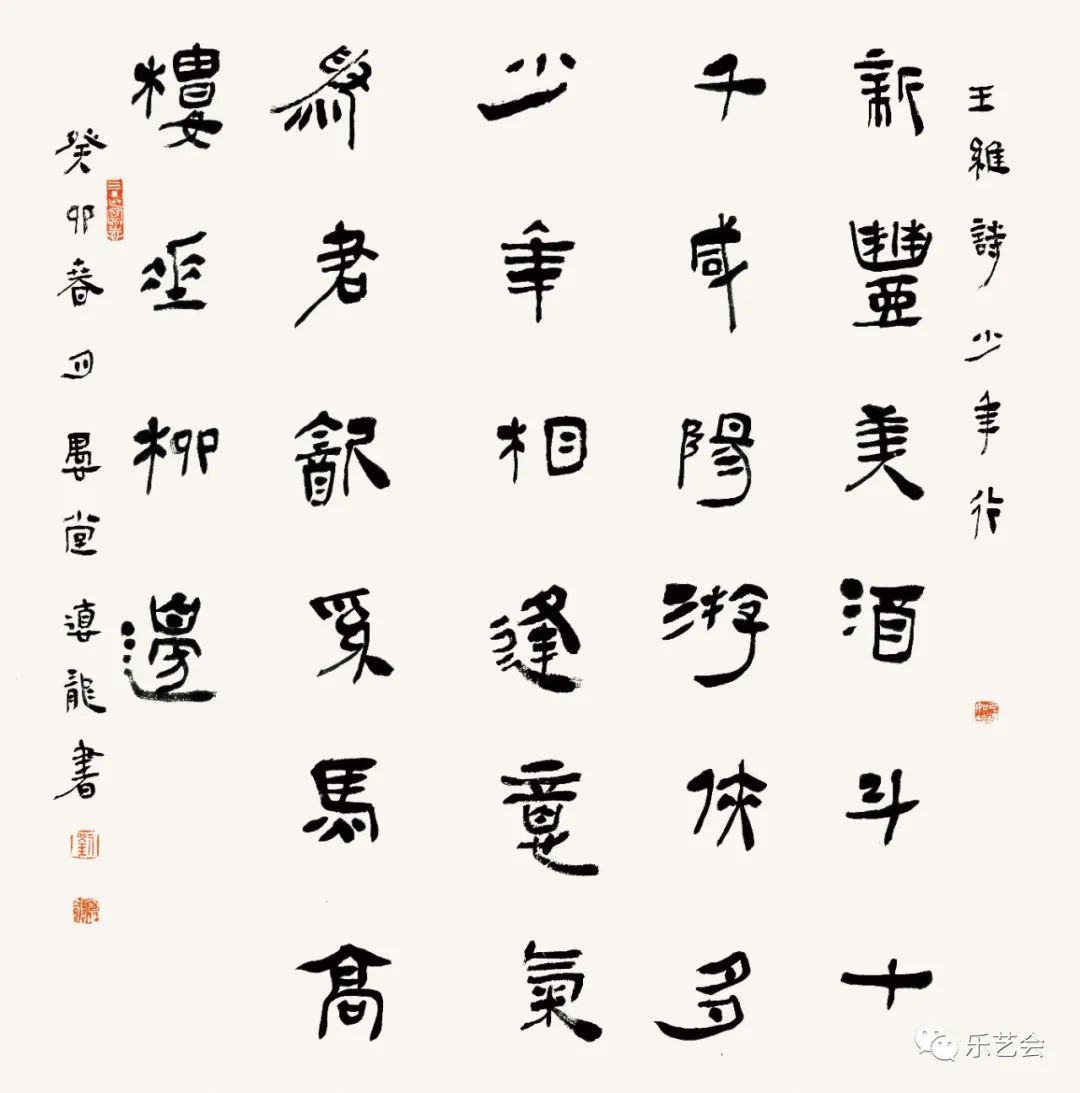 王維詩少年行
新豐美酒斗十
千咸陽游俠多
少年相逢意氣
為君飲系馬高
樓垂柳邊
癸卯春月堂龍書
乐艺会